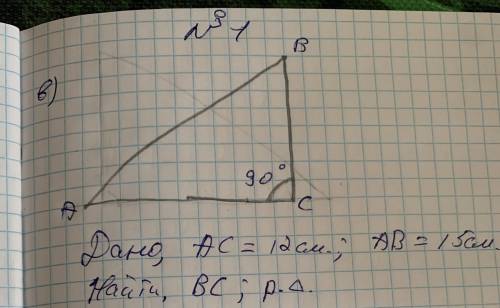 № 1
B
в)
90°
A
C
Дано, AC = 12см.; AB = 15см.
Найти, BC; р.Δ.